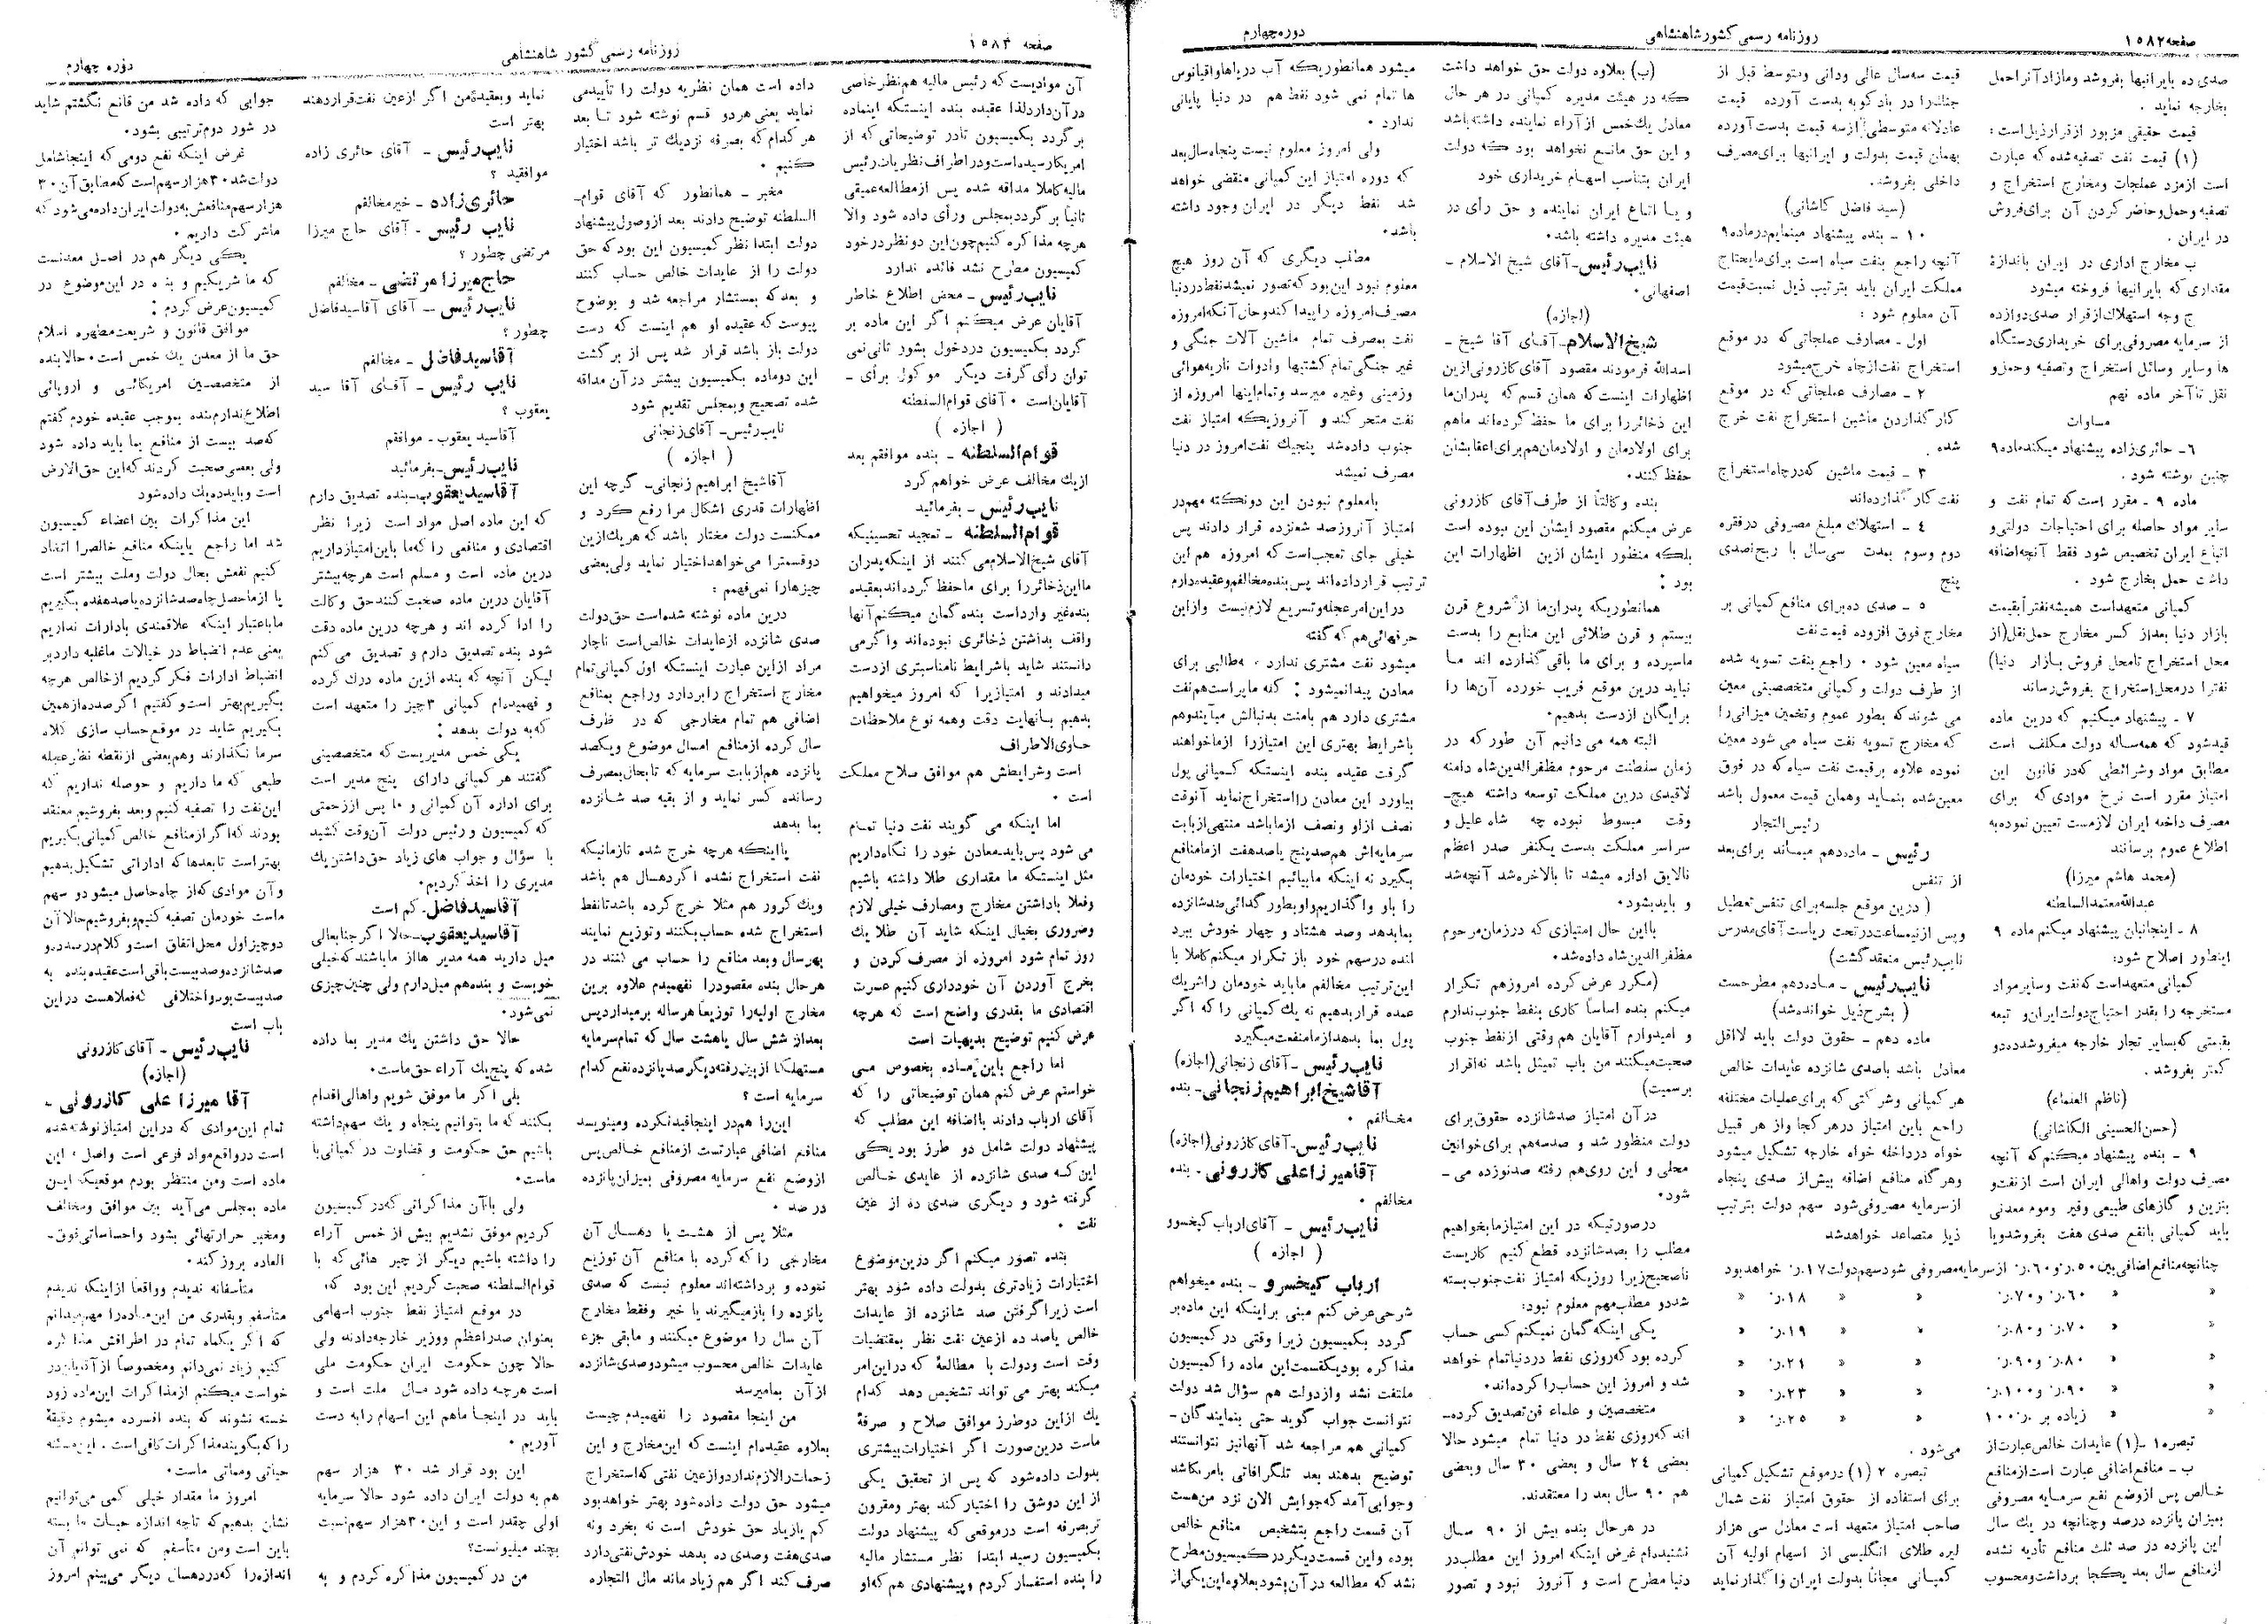 صفحه ۱۵۸۲
روزنامه رسمی کشور شاهنشاهی
دوره چهارم
صدی ده بایرانیها بفروشد و مازاد آنرا حمل
بخارجه نماید .
قیمت حقیقی مزبور از قرار ذیل است :
(۱) قیمت نفت تصفیه شده که عبارت
است از مزد عملجات و مخارج استخراج و
تصفیه و حمل و حاضر کردن آن برای فروش
در ایران .
ب مخارج اداری در ایران باندازهٔ
مقداری که بایرانیها فروخته میشود
ج وجه استهلاك از قرار صدی دوازده
از سرمایه مصروفی برای خریداری دستگاه
ها و سایر وسائل استخراج و تصفیه و حمل و
نقل تا آخر ماده نهم
مساوات
۶- حائری زاده پیشنهاد میکند ماده ۹
چنین نوشته شود .
ماده ۹ - مقرر است که تمام نفت و
سایر مواد حاصله برای احتیاجات دولتی و
اتباع ایران تخصیص شود فقط آنچه اضافه
داشت حمل بخارج شود .
کمپانی متعهد است همیشه نفت را بقیمت
بازار دنیا بعد از کسر مخارج حمل نقل (از
محل استخراج تا محل فروش بازار دنیا)
نفت را در محل استخراج بفروش رساند
۷ - پیشنهاد میکنیم که درین ماده
قید شود که همه ساله دولت مکلف است
مطابق مواد و شرائطی که در قانون این
امتیاز مقرر است نرخ موادی که برای
مصرف داخله ایران لازمست تعیین نموده به
اطلاع عموم برسانند
(محمد هاشم میرزا)
عبدالله معتمد السلطنه
۸ - اینجانبان پیشنهاد میکنم ماده ۹
اینطور اصلاح شود:
کمپانی متعهد است که نفت و سایر مواد
مستخرجه را بقدر احتیاج دولت ایران و تبعه
بقیمتی که بسایر تجار خارجه میفروشد ده دو
کمتر بفروشد .
(ناظم العلماء)
(حسن الحسینی الکاشانی)
۹ - بنده پیشنهاد میکنم که آنچه
مصرف دولت و اهالی ایران است از نفت و
بنزین و گازهای طبیعی وقیر و موم معدنی
باید کمپانی با نفع صدی هفت بفروشد و با
قیمت سه سال عالی و دانی و متوسط قبل از
جنك را در بادکوبه بدست آورده قیمت
عادلانه متوسطی از سه قیمت بدست آورده
بهمان قیمت بدولت و ایرانیها برای مصرف
داخلی بفروشد.
(سید فاضل کاشانی)
۱۰ - بنده پیشنهاد مینمایم در ماده ۹
آنچه راجع بنفت سیاه است برای مایحتاج
مملکت ایران باید بترتیب ذیل نسبت قیمت
آن معلوم شود :
اول - مصارف عملجاتی که در موقع
استخراج نفت از چاه خرج میشود
۲ - مصارف عملجاتی که در موقع
کار گذاردن ماشین استخراج نفت خرج
شده .
۳ - قیمت ماشین که در چاه استخراج
نفت کار گذارده اند
٤ - استهلاك مبلغ مصروفی در فقره
دوم و سوم بمدت سی سال با ربح صدی
پنج
۵ - صدی ده برای منافع کمپانی بر
مخارج فوق افزوده قیمت نفت
سیاه معین شود . راجع بنفت تسویه شده
از طرف دولت و کمپانی متخصصینی معین
می شوند که بطور عموم و تخمین میزانی را
که مخارج تسویه نفت سیاه می شود معین
نموده علاوه بر قیمت نفت سیاه که در فوق
معین شده بنماید و همان قیمت معمول باشد
رئیس التجار
رئیس - ماده دهم میماند برای بعد
از تنفس
( درین موقع جلسه برای تنفس تعطیل
و پس از نیم ساعت در تحت ریاست آقای مدرس
نایب رئیس منعقد گشت)
نایب رئیس - ماده دهم مطرحست
( بشرح ذیل خوانده شد)
ماده دهم - حقوق دولت باید لااقل
معادل باشد با صدی شانزده عایدات خالص
هر کمپانی و شرکتی که برای عملیات مختلفه
راجع باین امتیاز در هر کجا و از هر قبیل
خواه در داخله خواه خارجه تشکیل میشود
و هر گاه منافع اضافه بیش از صدی پنجاه
از سرمایه مصروفی شود سهم دولت بترتیب
ذیل متصاعد خواهد شد
چنانچه منافع اضافی بین ۵۰.ر و ۶۰.ر از سرمایه مصروفی شود سهم دولت ۱۷.ر خواهد بود
« « ۶۰.ر و ۷۰.ر « « ۱۸.ر «
« « ۷۰.ر و ۸۰.ر « « ۱۹.ر «
« « ۸۰.ر و ۹۰.ر « « ۲۱.ر «
« « ۹۰.ر و ۱۰۰.ر « « ۲۳.ر «
« « زیاده بر ۱۰۰.ر « « ۲۵.ر «
تبصره ۱ - (۱) عایدات خالص عبارت از
ب - منافع اضافی عبارت است از منافع
خالص پس از وضع نفع سرمایه مصروفی
بمیزان پانزده درصد و چنانچه در یك سال
این پانزده در صد ثلث منافع تأدیه نشده
از منافع سال بعد یکجا برداشت و محسوب
می شود .
تبصره ۲ (۱) در موقع تشکیل کمپانی
برای استفاده از حقوق امتیاز نفت شمال
صاحب امتیاز متعهد است معادل سی هزار
لیره طلای انگلیسی از اسهام اولیه آن
کمپانی مجاناً بدولت ایران واگذار نماید
(ب) بعلاوه دولت حق خواهد داشت
که در هیئت مدیره کمپانی در هر حال
معادل یك خمس از آراء نماینده داشته باشد
و این حق مانع نخواهد بود که دولت
ایران بتناسب اسهام خریداری خود
و یا اتباع ایران نماینده و حق رأی در
هیئت مدیره داشته باشد.
نایب رئیس - آقای شیخ الاسلام -
اصفهانی.
(اجازه)
شیخ الاسلام - آقای آقا شیخ -
اسدالله فرمودند مقصود آقای کازرونی ازین
اظهارات اینست که همان قسم که پدران ما
این ذخائر را برای ما حفظ کرده اند ما هم
برای اولادمان و اولادمان هم برای اعقابشان
حفظ کنند.
بنده وکالتاً از طرف آقای کازرونی
عرض میکنم مقصود ایشان این نبوده است
بلکه منظور ایشان ازین اظهارات این
بود :
همانطوریکه پدران ما از شروع قرن
بیستم و قرن طلائی این منابع را بدست
ما سپرده و برای ما باقی گذارده اند ما
نباید درین موقع فریب خورده آن ها را
برایگان از دست بدهیم.
البته همه می دانیم آن طور که در
زمان سلطنت مرحوم مظفرالدین شاه دامنه
لاقیدی درین مملکت توسعه داشته هیچ-
وقت مبسوط نبوده چه شاه علیل و
سراسر مملکت بدست یکنفر صدر اعظم
نالایق اداره میشد تا بالاخره شد آنچه شد
و باید بشود.
با این حال امتیازی که در زمان مرحوم
مظفر الدین شاه داده شد.
(مکرر عرض کرده امروز هم تکرار
میکنم بنده اساساً کاری بنفط جنوب ندارم
و امیدوارم آقایان هم وقتی از نفط جنوب
صحبت میکنند من باب تمثیل باشد نه اقرار
برسمیت)
در آن امتیاز صد شانزده حقوق برای
دولت منظور شد و صد سه هم برای خوانین
محلی و این روی هم رفته صد نوزده می -
شود.
در صورتیکه در این امتیاز ما بخواهیم
مطلب را بصد شانزده قطع کنیم کاریست
ناصحیح زیرا روزیکه امتیاز نفت جنوب بسته
شد دو مطلب مهم معلوم نبود:
یکی اینکه گمان نمیکنم کسی حساب
کرده بود که روزی نفط در دنیا تمام خواهد
شد و امروز این حساب را کرده اند.
متخصصین و علماء فن تصدیق کرده-
اند که روزی نفط در دنیا تمام میشود حالا
بعضی ۲۴ سال و بعضی ۳۰ سال و بعضی
هم ۹۰ سال بعد را معتقدند.
در هرحال بنده بیش از ۹۰ سال
نشنیده ام غرض اینکه امروز این مطلب در
دنیا مطرح است و آنروز نبود و تصور
میشود همانطوریکه آب دریاها و اقیانوس
ها تمام نمی شود نفط هم در دنیا پایانی
ندارد .
ولی امروز معلوم نیست پنجاه سال بعد
که دوره امتیاز این کمپانی منقضی خواهد
شد نفط دیگر در ایران وجود داشته
باشد.
مطلب دیگری که آن روز هیچ
معلوم نبود این بود که تصور نمیشد نفط در دنیا
مصرف امروزه را پیدا کند و حال آنکه امروزه
نفت بمصرف تمام ماشین آلات جنگی و
غیر جنگی تمام کشتیها و ادوات ناریه هوائی
و زمینی و غیره میرسد و تمام اینها امروزه از
نفت متحرکند و آنروزیکه امتیاز نفت
جنوب داده شد پنجیك نفت امروز در دنیا
مصرف نمیشد
با معلوم نبودن این دو نکته مهم در
امتیاز آنروز صد شانزده قرار دادند پس
خیلی جای تعجب است که امروزه هم این
ترتیب قرار داده اند پس بنده مخالفم و عقیده دارم
در این امر عجله و تسریع لازم نیست و از این
حرفهائی هم که گفته
میشود نفت مشتری ندارد ، مطالبی برای
معادن پیدا نمیشود : کنه مایر است هم نفت
مشتری دارد هم با منت بدنبالش میآیند و هم
با شرایط بهتری این امتیاز را از ما خواهند
گرفت عقیده بنده اینستکه کمپانی پول
بیاورد این معادن را استخراج نماید آنوقت
نصف از او و نصف از ما باشد منتهی از بابت
سرمایه اش هم صد پنج یا صد هفت از ما منافع
بگیرد نه اینکه ما بیائیم اختیارات خودمان
را باو واگذاریم و او بطور گدائی صد شانزده
بما بدهد و صد هشتاد و چهار خودش ببرد
بنده در سهم خود باز تکرار میکنم کاملا با
این ترتیب مخالفم ما باید خودمان را شریك
عمده قرار بدهیم نه یك کمپانی را که اگر
پول بما بدهد از ما منفعت میگیرد
نایب رئیس - آقای زنجانی (اجازه)
آقا شیخ ابراهیم زنجانی - بنده
مخالفم .
نایب رئیس - آقای کازرونی (اجازه)
آقا میرزا علی کازرونی - بنده
مخالفم .
نایب رئیس - آقای ارباب کیخسرو
( اجازه )
ارباب کیخسرو - بنده میخواهم
شرحی عرض کنم مبنی بر اینکه این ماده بر
گردد بکمیسیون زیرا وقتی در کمیسیون
مذاکره بود یکقسمت این ماده را کمیسیون
ملتفت نشد و از دولت هم سؤال شد دولت
نتوانست جواب گوید حتی بنمایندگان -
کمپانی هم مراجعه شد آنها نیز نتوانستند
توضیح بدهند بعد تلگرافاتی بامریکا شد
و جوابی آمد که جوابش الان نزد من هست
آن قسمت راجع بتشخیص منافع خالص
بوده و این قسمت دیگر در کمیسیون مطرح
نشد که مطالعه در آن بشود بعلاوه این یکی از
صفحه ۱۵۸۳
روزنامه رسمی کشور شاهنشاهی
دوره چهارم
آن موادیست که رئیس مالیه هم نظر خاصی
در آن دارد لذا عقیده بنده اینستکه اینماده
برگردد بکمیسیون تا در توضیحاتی که از
امریکا رسیده است و در اطراف نظریات رئیس
مالیه کاملا مداقه شده پس از مطالعه عمیقی
ثانیاً برگردد بمجلس و رأی داده شود والا
هرچه مذاکره کنیم چون این دو نظر در خود
کمیسیون مطرح نشد فائده ندارد
نایب رئیس - محض اطلاع خاطر
آقایان عرض میکنم اگر این ماده بر
گردد بکمیسیون دردخول بشور ثانی نمی
توان رأی گرفت دیگر موکول برأی -
آقایان است . آقای قوام السلطنه
( اجازه )
قوام السلطنه - بنده موافقم بعد
از یك مخالف عرض خواهم کرد
نایب رئیس - بفرمائید
قوام السلطنه - تمجید تحسینیکه
آقای شیخ الاسلام می کنند از اینکه پدران
ما این ذخائر را برای ما حفظ کرده اند بعقیده
بنده غیر وارد است بنده گمان میکنم آنها
واقف بداشتن ذخائری نبوده اند و اگر می
دانستند شاید با شرایط نامناسبتری از دست
میدادند و امتیازیرا که امروز میخواهیم
بدهیم با نهایت دقت و همه نوع ملاحظات
حاوی الاطراف
است و شرایطش هم موافق صلاح مملکت
است .
اما اینکه می گویند نفت دنیا تمام
می شود پس باید معادن خود را نگاهداریم
مثل اینستکه ما مقداری طلا داشته باشیم
و فعلا با داشتن مخارج و مصارف خیلی لازم
و ضروری بخیال اینکه شاید آن طلا یك
روز تمام شود امروزه از مصرف کردن و
بخرج آوردن آن خودداری کنیم عسرت
اقتصادی ما بقدری واضح است که هرچه
عرض کنیم توضیح بدیهیات است
اما راجع باین ماده بخصوص می
خواستم عرض کنم همان توضیحاتی را که
آقای ارباب دادند با اضافه این مطلب که
پیشنهاد دولت شامل دو طرز بود یکی
این که صدی شانزده از عایدی خالص
گرفته شود و دیگری صدی ده از عین
نفت .
بنده تصور میکنم اگر درین موضوع
اختیارات زیادتری بدولت داده شود بهتر
است زیرا گرفتن صد شانزده از عایدات
خالص یا صد ده از عین نفت نظر بمقتضیات
وقت است و دولت با مطالعهٔ که در این امر
میکند بهتر می تواند تشخیص دهد کدام
یك از این دو طرز موافق صلاح و صرفهٔ
ماست درین صورت اگر اختیارات بیشتری
بدولت داده شود که پس از تحقیق یکی
از این دو شق را اختیار کند بهتر و مقرون
تر بصرفه است در موقعی که پیشنهاد دولت
بکمیسیون رسید ابتدا نظر مستشار مالیه
را بنده استفسار کردم و پیشنهادی هم که او
داده است همان نظریه دولت را تأیید می
نماید یعنی هر دو قسم نوشته شود تا بعد
هر کدام که بصرفه نزدیك تر باشد اختیار
کنیم .
مخبر - همانطور که آقای قوام-
السلطنه توضیح دادند بعد از وصول پیشنهاد
دولت ابتدا نظر کمیسیون این بود که حق
دولت را از عایدات خالص حساب کنند
و بعد که بمستشار مراجعه شد و بوضوح
پیوست که عقیده او هم اینست که دست
دولت باز باشد قرار شد پس از برگشت
این دو ماده بکمیسیون بیشتر در آن مداقه
شده تصحیح و بمجلس تقدیم شود
نایب رئیس - آقای زنجانی
( اجازه )
آقا شیخ ابراهیم زنجانی - گرچه این
اظهارات قدری اشکال مرا رفع کرد و
ممکنست دولت مختار باشد که هر یك ازین
دو قسم را می خواهد اختیار نماید ولی بعضی
چیزها را نمی فهمم :
درین ماده نوشته شده است حق دولت
صدی شانزده از عایدات خالص است ناچار
مراد از این عبارت اینستکه اول کمپانی تمام
مخارج استخراج را بردارد و راجع بمنافع
اضافی هم تمام مخارجی که در ظرف
سال کرده از منافع امسال موضوع و یکصد
پانزده هم از بابت سرمایه که تا بحال بمصرف
رسانده کسر نماید و از بقیه صد شانزده
بما بدهد
یا اینکه هرچه خرج شده تا زمانیکه
نفت استخراج نشده اگر ده سال هم باشد
و یك کرور هم مثلا خرج کرده باشد تا نفط
استخراج شده حساب بکنند و توزیع نمایند
بهر سال و بعد منافع را حساب می کنند در
هر حال بنده مقصود را نفهمیدم علاوه برین
مخارج اولیه را توزیعاً هر ساله بر میدارد پس
بعد از شش سال یا هشت سال که تمام سرمایه
مستهلکاً از بین رفته دیگر صد پانزده نفع کدام
سرمایه است ؟
این را هم در اینجا قید نکرده و مینویسد
منافع اضافی عبارتست از منافع خالص پس
از وضع نفع سرمایه مصروفی بمیزان پانزده
در صد .
مثلا پس از هشت یا ده سال آن
مخارجی را که کرده با منافع آن توزیع
نموده و برداشته اند معلوم نیست که صدی
پانزده را باز میگیرند یا خیر و فقط مخارج
آن سال را موضوع میکنند و مابقی جزء
عایدات خالص محسوب میشود و صدی شانزده
از آن بما میرسد
من اینجا مقصود را نفهمیدم چیست
بعلاوه عقیده ام اینست که این مخارج و این
زحمات را لازم ندارد و از عین نفتی که استخراج
میشود حق دولت داده شود بهتر خواهد بود
کم یا زیاد حق خودش است نه بخرد و نه
صدی هفت و صدی ده بدهد خودش نفتی دارد
صرف کند اگر هم زیاد ماند مال التجاره
نماید و بعقیدهٔ من اگر از عین نفت قرار دهند
بهتر است
نایب رئیس - آقای حائری زاده
موافقید ؟
حائری زاده - خیر مخالفم
نایب رئیس - آقای حاج میرزا
مرتضی چطور ؟
حاج میرزا مرتضی - مخالفم
نایب رئیس - آقای آقا سید فاضل
چطور ؟
آقا سید فاضل - مخالفم
نایب رئیس - آقای آقا سید
یعقوب ؟
آقا سید یعقوب - موافقم
نایب رئیس - بفرمائید
آقا سید یعقوب - بنده تصدیق دارم
که این ماده اصل مواد است زیرا نظر
اقتصادی و منافعی را که ما باین امتیاز داریم
درین ماده است و مسلم است هرچه بیشتر
آقایان درین ماده صحبت کنند حق وکالت
را ادا کرده اند و هرچه درین ماده دقت
شود بنده تصدیق دارم و تصدیق می کنم
لیکن آنچه که بنده ازین ماده درك کرده
و فهمیده ام کمپانی ۳ چیز را متعهد است
که به دولت بدهد :
یکی خمس مدیریست که متخصصینی
گفتند هر کمپانی دارای پنج مدیر است
برای اداره آن کمپانی و ما پس از زحمتی
که کمیسیون و رئیس دولت آن وقت کشید
با سؤال و جواب های زیاد حق داشتن یك
مدیری را اخذ کردیم.
آقا سید فاضل - کم است
آقا سید یعقوب - حالا اگر جنابعالی
میل دارید همه مدیر ها از ما باشند که خیلی
خوبست و بنده هم میل دارم ولی چنین چیزی
نمی شود.
حالا حق داشتن یك مدیر بما داده
شده که پنج یك آراء حق ماست.
بلی اگر ما موفق شویم و اهالی اقدام
بکنند که ما بتوانیم پنجاه و یك سهم داشته
باشیم حق حکومت و قضاوت در کمپانی با
ماست.
ولی با آن مذاکراتی که در کمیسیون
کردیم موفق نشدیم بیش از خمس آراء
را داشته باشیم دیگر از چیز هائی که با
قوام السلطنه صحبت کردیم این بود که،
در موقع امتیاز نفط جنوب اسهامی
بعنوان صدراعظم و وزیر خارجه دادند ولی
حالا چون حکومت ایران حکومت ملی
است هرچه داده شود مال ملت است و
باید در اینجا ما هم این اسهام را به دست
آوریم .
این بود قرار شد ۳۰ هزار سهم
هم به دولت ایران داده شود حالا سرمایه
اولی چقدر است و این ۳۰ هزار سهم نسبت
بچند میلیونست؟
من در کمیسیون مذاکره کردم و به
جوابی که داده شد من قانع نگشتم شاید
در شور دوم ترتیبی بشود.
غرض اینکه نفع دومی که اینجا شامل
دولت شد ۳۰ هزار سهم است که مطابق آن ۳۰
هزار سهم منافعش به دولت ایران داده می شود که
ما شرکت داریم .
یکی دیگر هم در اصل معدنست
که ما شریکیم و بنده در این موضوع در
کمیسیون عرض کردم :
موافق قانون و شریعت مطهره اسلام
حق ما از معدن یك خمس است . حالا بنده
از متخصصین امریکائی و اروپائی
اطلاع ندارم بنده بموجب عقیده خودم گفتم
که صد بیست از منافع بما باید داده شود
ولی بعضی صحبت کردند که این حق الارض
است و باید ده یك داده شود
این مذاکرات بین اعضاء کمیسیون
شد اما راجع باینکه منافع خالص را اتخاذ
کنیم نفعش بحال دولت و ملت بیشتر است
یا از ما حصل چاه صد شانزده یا صد هفده بگیریم
ما باعتبار اینکه علاقمندی بادارات نداریم
یعنی عدم انضباط در خیالات ما غلبه دارد بر
انضباط ادارات فکر کردیم از خالص هرچه
بگیریم بهتر است و گفتیم اگر صد ده از همین
بگیریم شاید در موقع حساب سازی کلاه
سر ما نگذارند و هم بعضی از نقطه نظر عمله
طبعی که ما داریم و حوصله نداریم که
این نفت را تصفیه کنیم و بعد بفروشیم معتقد
بودند که اگر از منافع خالص کمپانی بگیریم
بهتر است تا بعدها که اداراتی تشکیل بدهیم
و آن موادی که از چاه حاصل میشود و سهم
ماست خودمان تصفیه کنیم و بفروشیم حالا آن
دو چیز اول محل اتفاق است و کلام در صد ده و
صد شانزده و صد بیست باقی است عقیده بنده به
صد بیست بود و اختلافی که فعلا هست در این
باب است
نایب رئیس - آقای کازرونی
(اجازه)
آقا میرزا علی کازرونی -
تمام این موادی که در این امتیاز نوشته شده
است در واقع مواد فرعی است و اصل ، این
ماده است و من منتظر بودم موقعیکه این
ماده بمجلس می آید بین موافق و مخالف
و مخبر حرارتهائی بشود و احساساتی فوق-
العاده بروز کند.
متأسفانه ندیدم و واقعاً از اینکه ندیدم
متأسفم و بقدری من این ماده را مهم میدانم
که اگر یکماه تمام در اطرافش مذاکره
کنیم زیاد نمی دانم و مخصوصاً از آقایان در
خواست میکنم از مذاکرات این ماده زود
خسته نشوند که بنده افسرده میشوم دقیقهٔ
را که بگویند مذاکرات کافی است . این مسئله
حیاتی و مماتی ماست.
امروز ما مقدار خیلی کمی می توانیم
نشان بدهیم که تا چه اندازه حیات ما بسته
باین است و من متأسفم که نمی توانم آن
اندازه را که در ده سال دیگر می بینم امروز